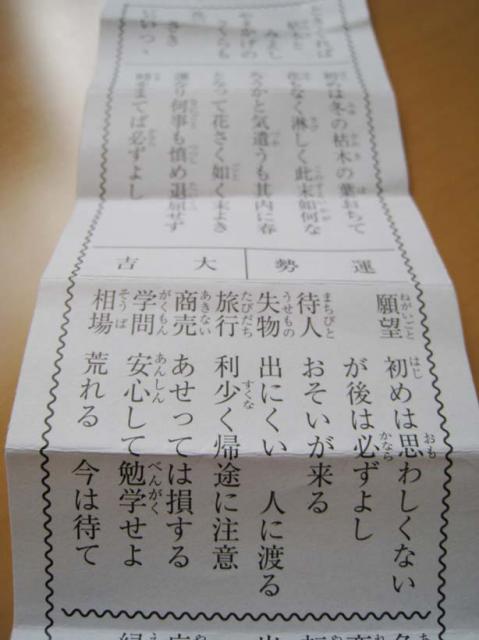 ときくれば
枯木と
みよし
やまかげの
さくらも
さき
初めは冬の枯木の葉おちて
なく淋しく此末如何な
るかと気遣うも其内に春
となって花さく如く末よき
運なり何事も慎め退屈せず
時をまてば必ずよし
運勢 大吉
願望 初めは思わしくない
が後は必ずよし
待人 おそいが来る
失物 出にくい 人に渡る
旅行 利少く帰途に注意
商売 あせっては損する
学問 安心して勉学せよ
相場 荒れる 今は待て